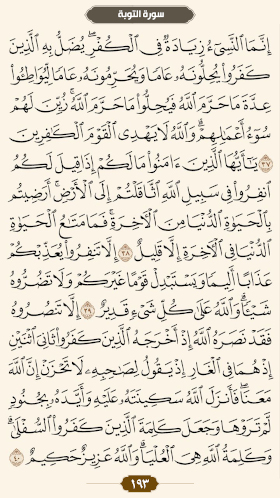 سورة التوبة
إِنَّمَا ٱلنَّسِىٓءُ زِيَادَةٌ فِى ٱلْكُفْرِ ۖ يُضَلُّ بِهِ ٱلَّذِينَ
كَفَرُوا۟ يُحِلُّونَهُۥ عَامًا وَيُحَرِّمُونَهُۥ عَامًا لِّيُوَاطِـُٔوا۟
عِدَّةَ مَا حَرَّمَ ٱللَّهُ فَيُحِلُّوا۟ مَا حَرَّمَ ٱللَّهُ ۚ زُيِّنَ لَهُمْ
سُوٓءُ أَعْمَـٰلِهِمْ ۗ وَٱللَّهُ لَا يَهْدِى ٱلْقَوْمَ ٱلْكَـٰفِرِينَ
٣٧ يَـٰٓأَيُّهَا ٱلَّذِينَ ءَامَنُوا۟ مَا لَكُمْ إِذَا قِيلَ لَكُمُ
ٱنفِرُوا۟ فِى سَبِيلِ ٱللَّهِ ٱثَّاقَلْتُمْ إِلَى ٱلْأَرْضِ ۚ أَرَضِيتُم
بِٱلْحَيَوٰةِ ٱلدُّنْيَا مِنَ ٱلْـَٔاخِرَةِ ۚ فَمَا مَتَـٰعُ ٱلْحَيَوٰةِ
ٱلدُّنْيَا فِى ٱلْـَٔاخِرَةِ إِلَّا قَلِيلٌ ٣٨ إِلَّا تَنفِرُوا۟ يُعَذِّبْكُمْ
عَذَابًا أَلِيمًا وَيَسْتَبْدِلْ قَوْمًا غَيْرَكُمْ وَلَا تَضُرُّوهُ
شَيْـًٔا ۗ وَٱللَّهُ عَلَىٰ كُلِّ شَىْءٍ قَدِيرٌ ٣٩ إِلَّا تَنصُرُوهُ
فَقَدْ نَصَرَهُ ٱللَّهُ إِذْ أَخْرَجَهُ ٱلَّذِينَ كَفَرُوا۟ ثَانِىَ ٱثْنَيْنِ
إِذْ هُمَا فِى ٱلْغَارِ إِذْ يَقُولُ لِصَـٰحِبِهِۦ لَا تَحْزَنْ إِنَّ ٱللَّهَ
مَعَنَا ۖ فَأَنزَلَ ٱللَّهُ سَكِينَتَهُۥ عَلَيْهِ وَأَيَّدَهُۥ بِجُنُودٍ
لَّمْ تَرَوْهَا وَجَعَلَ كَلِمَةَ ٱلَّذِينَ كَفَرُوا۟ ٱلسُّفْلَىٰ ۗ
وَكَلِمَةُ ٱللَّهِ هِىَ ٱلْعُلْيَا ۗ وَٱللَّهُ عَزِيزٌ حَكِيمٌ ٤٠
١٩٣